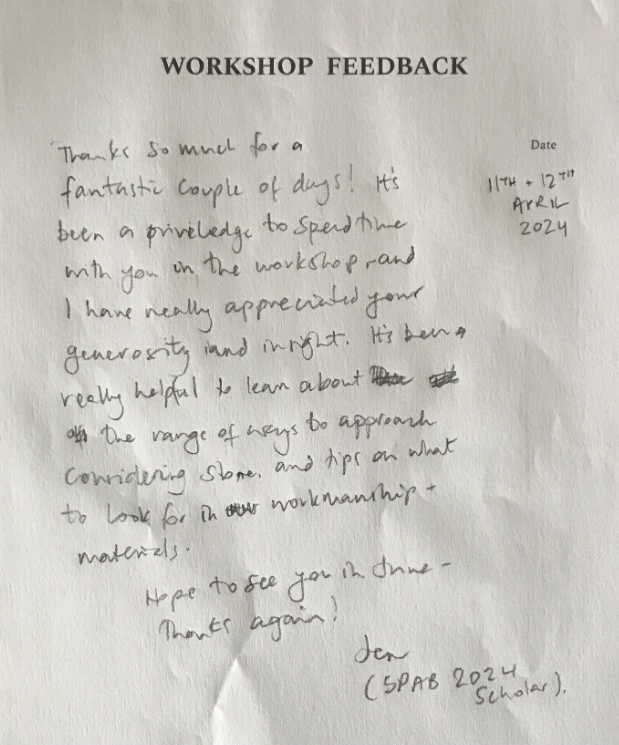 WORKSHOP FEEDBACK
Thanks so much for a
fantastic couple of days! It's
been a priviledge to spend time
with you on the workshop, and
I have really appreciated your
generosity and insight. It's been a
really helpful to learn about
the range of ways to approach
considering stone, and tips on what
to look for in workmanship +
materials.
Hope to see you in June -
Thanks again!
Jen
(SPAB 2024
Scholar).
Date
11TH + 12TH
APRIL
2024